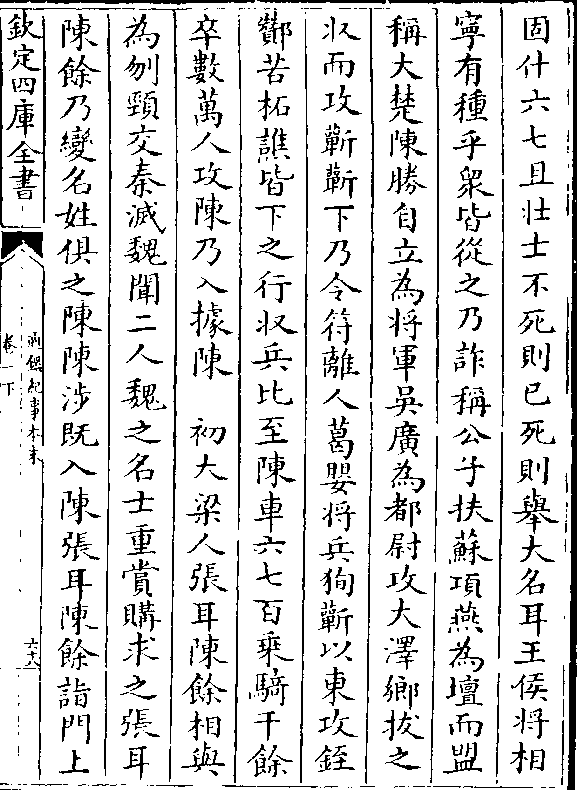 固什六七且壯士不死則已死則舉大名耳王侯將相
寧有種乎衆皆從之乃詐稱公子扶蘇項燕為壇而盟
稱大楚陳勝自立為將軍吳廣為都尉攻大澤鄉拔之
収而攻蘄蘄下乃令符離人葛嬰將兵狥蘄以東攻銍
酇苦柘譙皆下之行収兵比至陳車六七百乘騎千餘
卒數萬人攻陳乃入據陳　初大梁人張耳陳餘相與
為刎頸交秦滅魏聞二人魏之名士重賞購求之張耳
陳餘乃變名姓俱之陳陳涉既入陳張耳陳餘詣門上
欽定四庫全書
紀事本末
卷一下
六十八